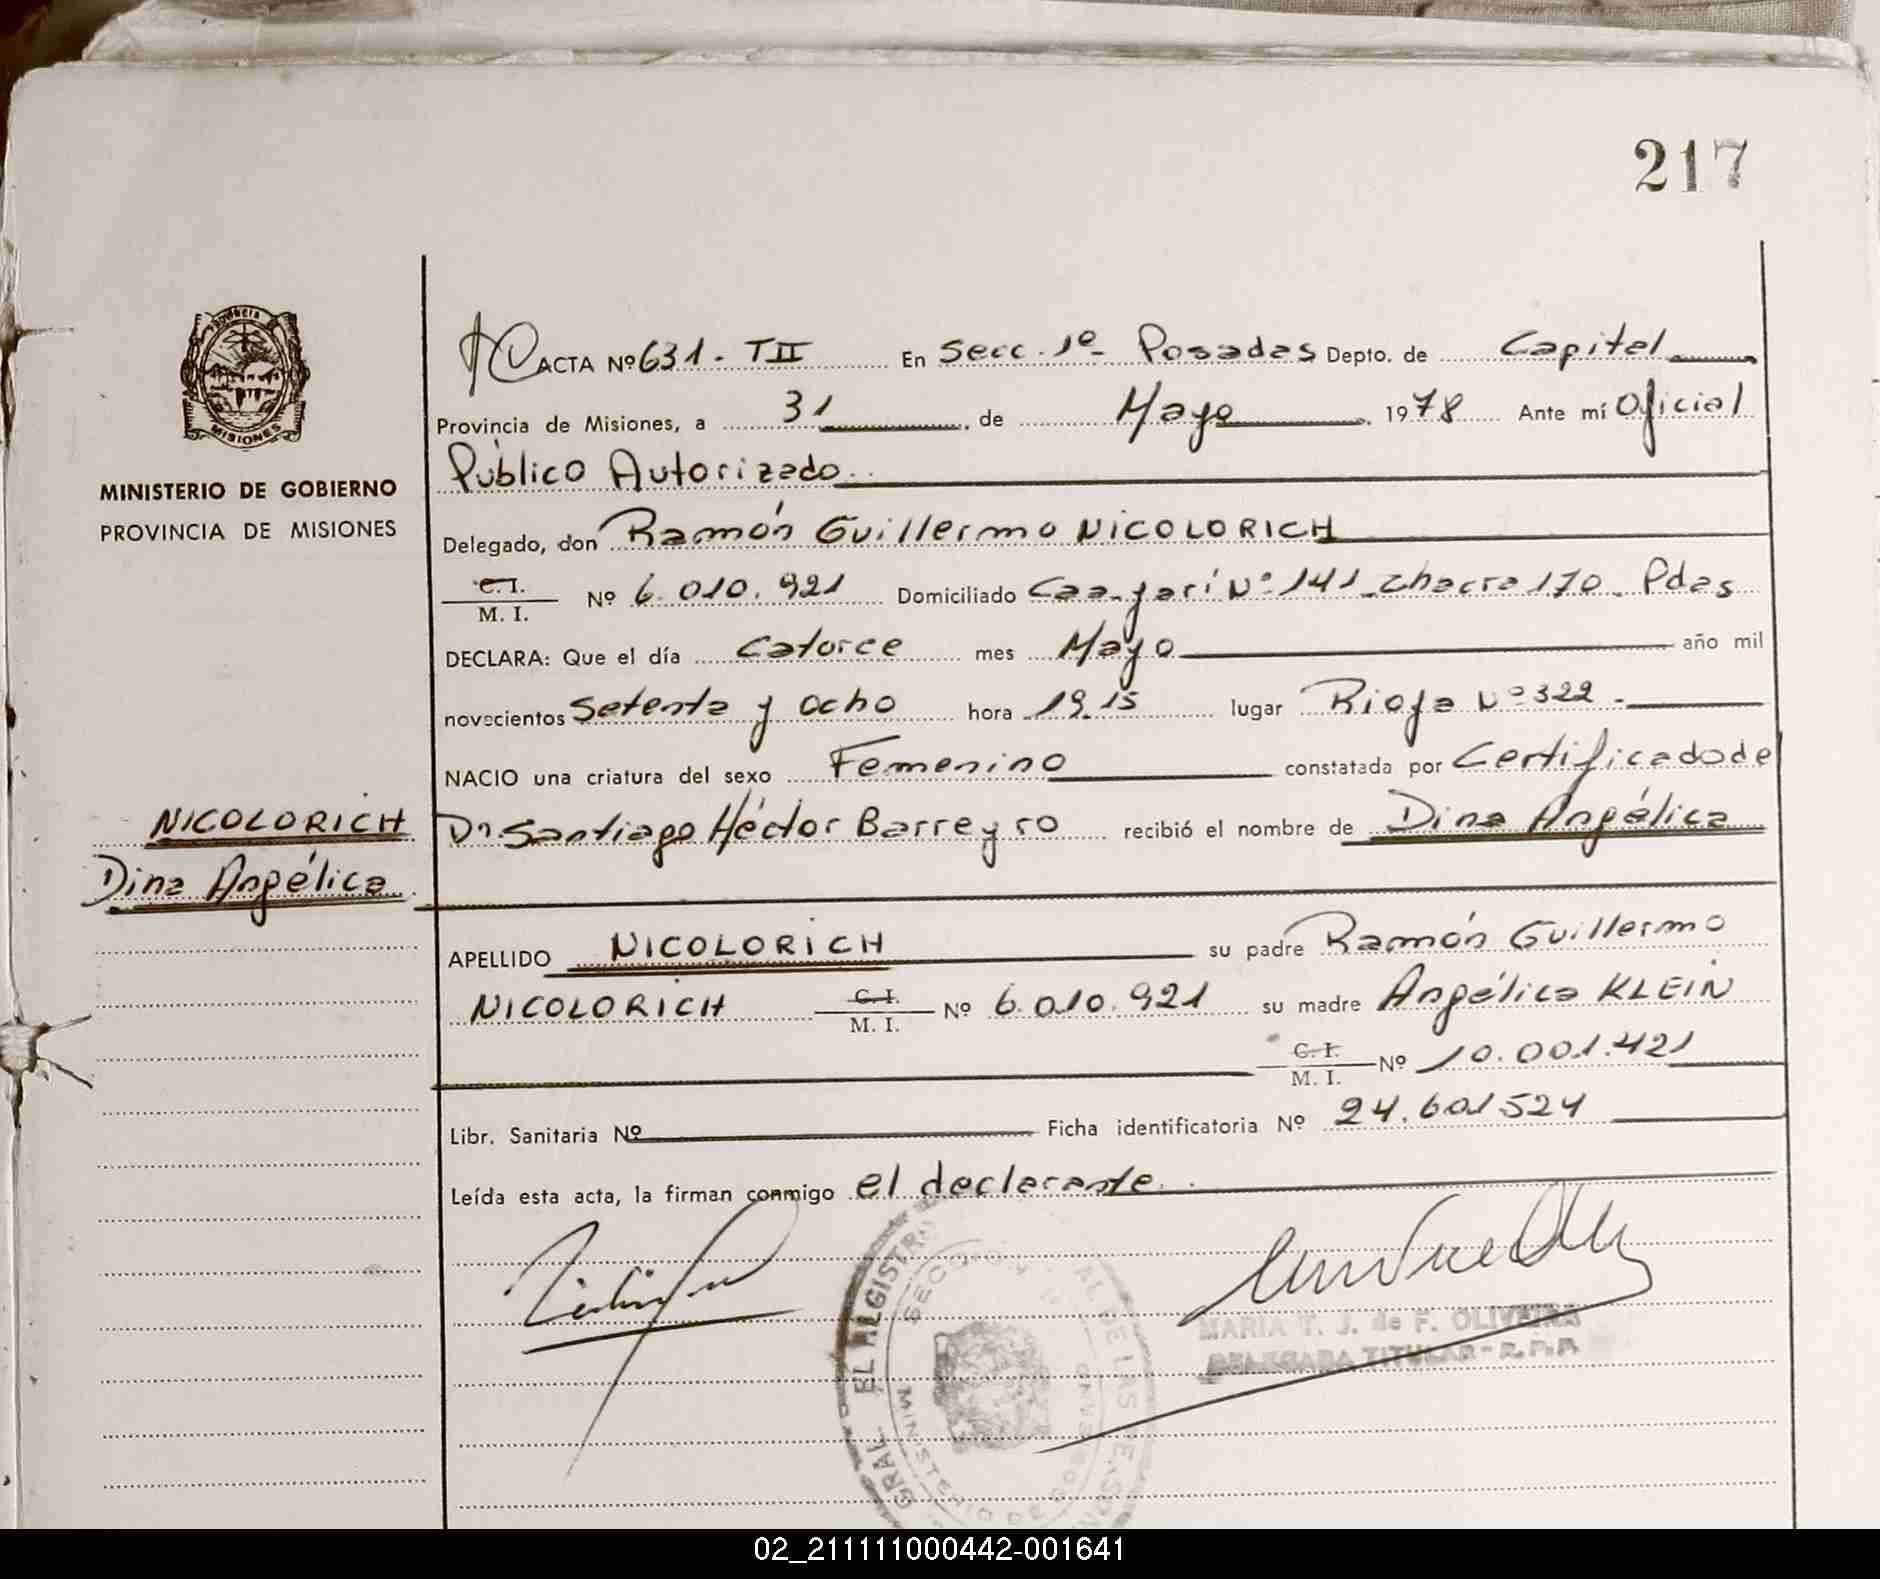 217
ACTA Nº 631 - TII En Secc. 1º Posadas Depto. de Capital
Provincia de Misiones, a 31 de Mayo 1978 Ante mí Oficial
Público Autorizado
MINISTERIO DE GOBIERNO
PROVINCIA DE MISIONES
MISIONES
Delegado, don Ramón Guillermo NICOLORICH
C. I.
M. I. Nº 6.010.921 Domiciliado Caa-yarí Nº 141 - chacra 170 - Pdas
DECLARA: Que el día Catorce mes Mayo año mil
novecientos Setenta y ocho hora 19.15 lugar Rioja Nº 322 -
NACIO una criatura del sexo Femenino constatada por Certificado de
Dr. Santiago Héctor Barreyro recibió el nombre de Dina Angélica
NICOLORICH
Dina Angélica
APELLIDO NICOLORICH su padre Ramón Guillermo
NICOLORICH C. I. M. I. Nº 6.010.921 su madre Angélica KLEIN
C. I. M. I. Nº 10.001.421
Libr. Sanitaria Nº Ficha identificatoria Nº 24.601.524
Leída esta acta, la firman conmigo el declarante.
MARIA T. J. de F. OLIVEIRA
DELEGADA TITULAR - R.P.P.
SECCION
02_211111000442-001641